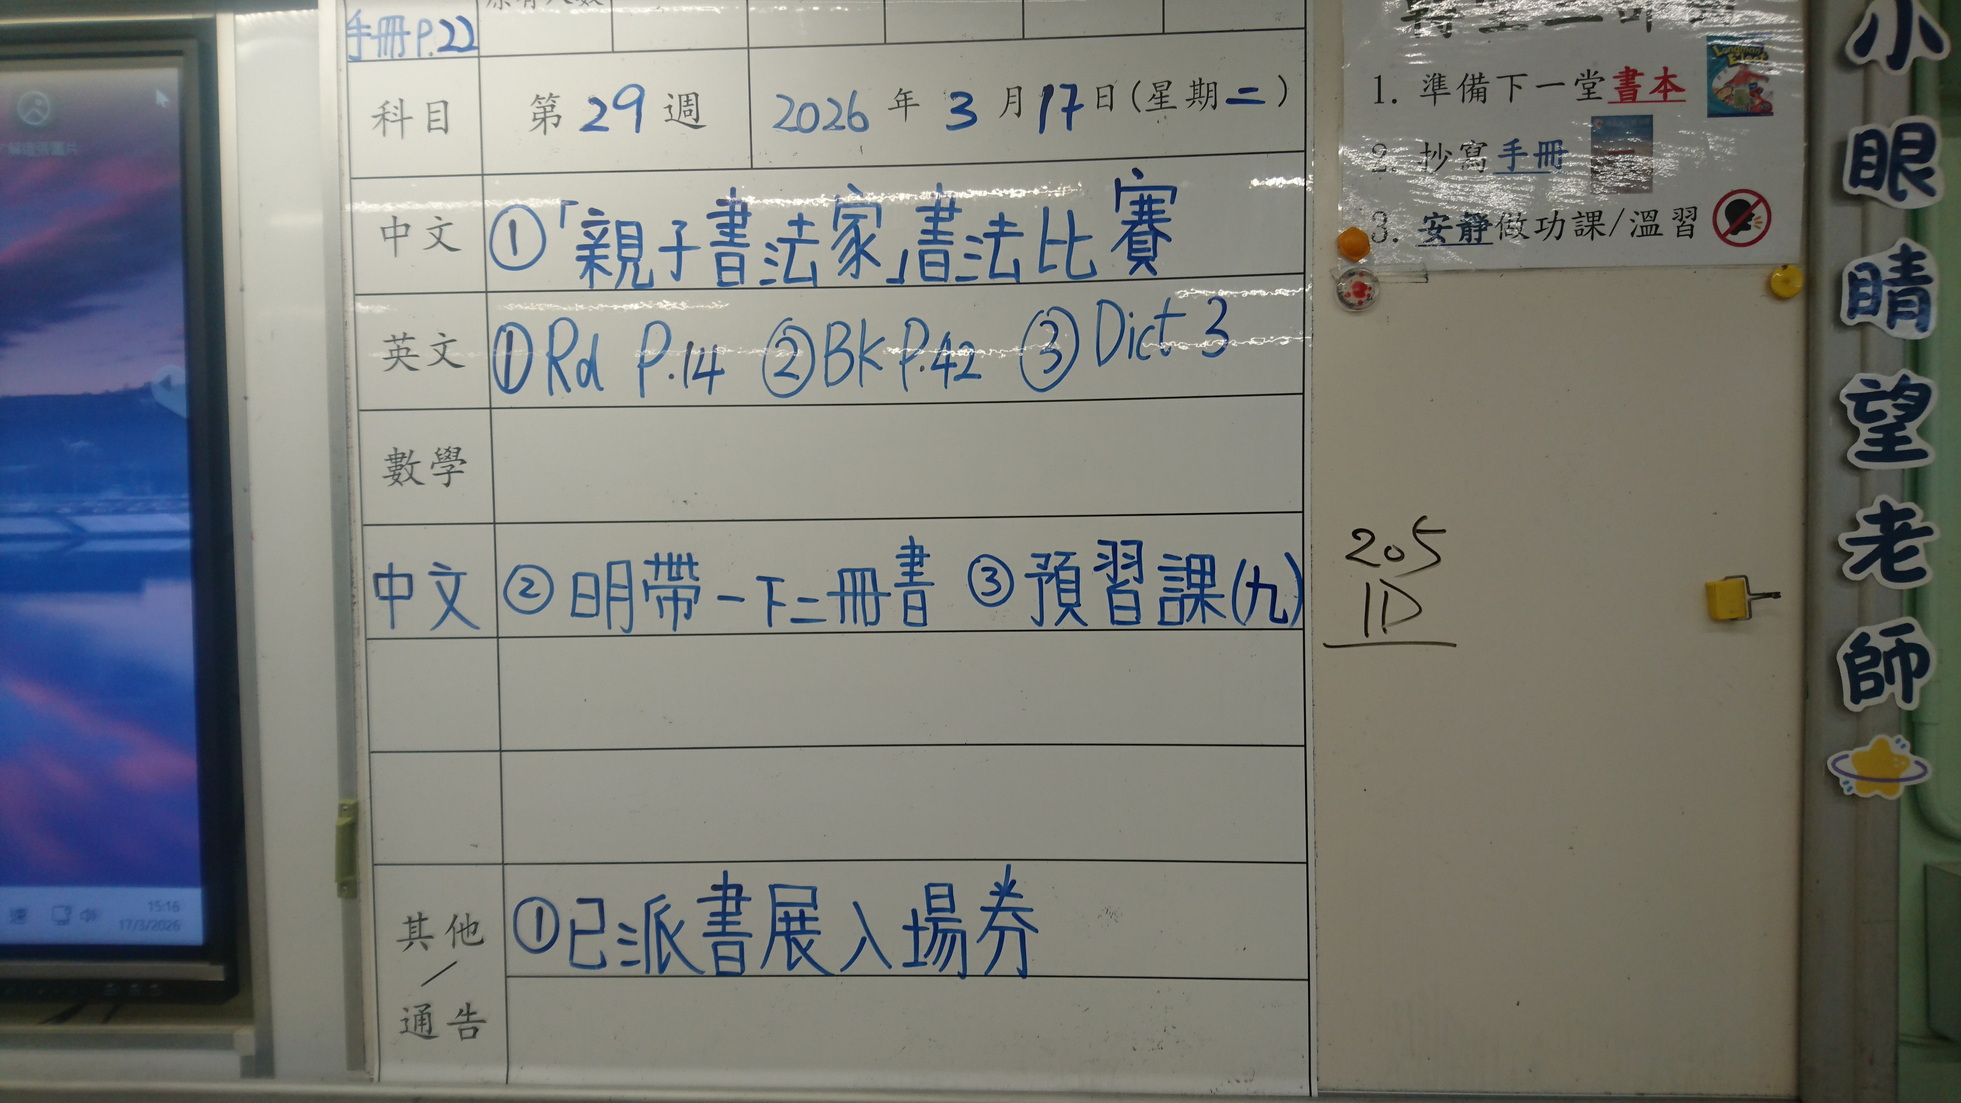 手冊P.22
科目 第29週 2026年3月17日(星期二)
中文 ①「親子書法家」書法比賽
英文 ①Rd P.14 ②BK P.42 ③Dict 3
數學
中文 ②明帶一下二冊書 ③預習課(九)
其他/通告 ①已派書展入場券
1. 準備下一堂書本
2. 抄寫手冊
3. 安靜做功課/溫習
205
1D
小眼睛望老師
15:16
17/3/2026